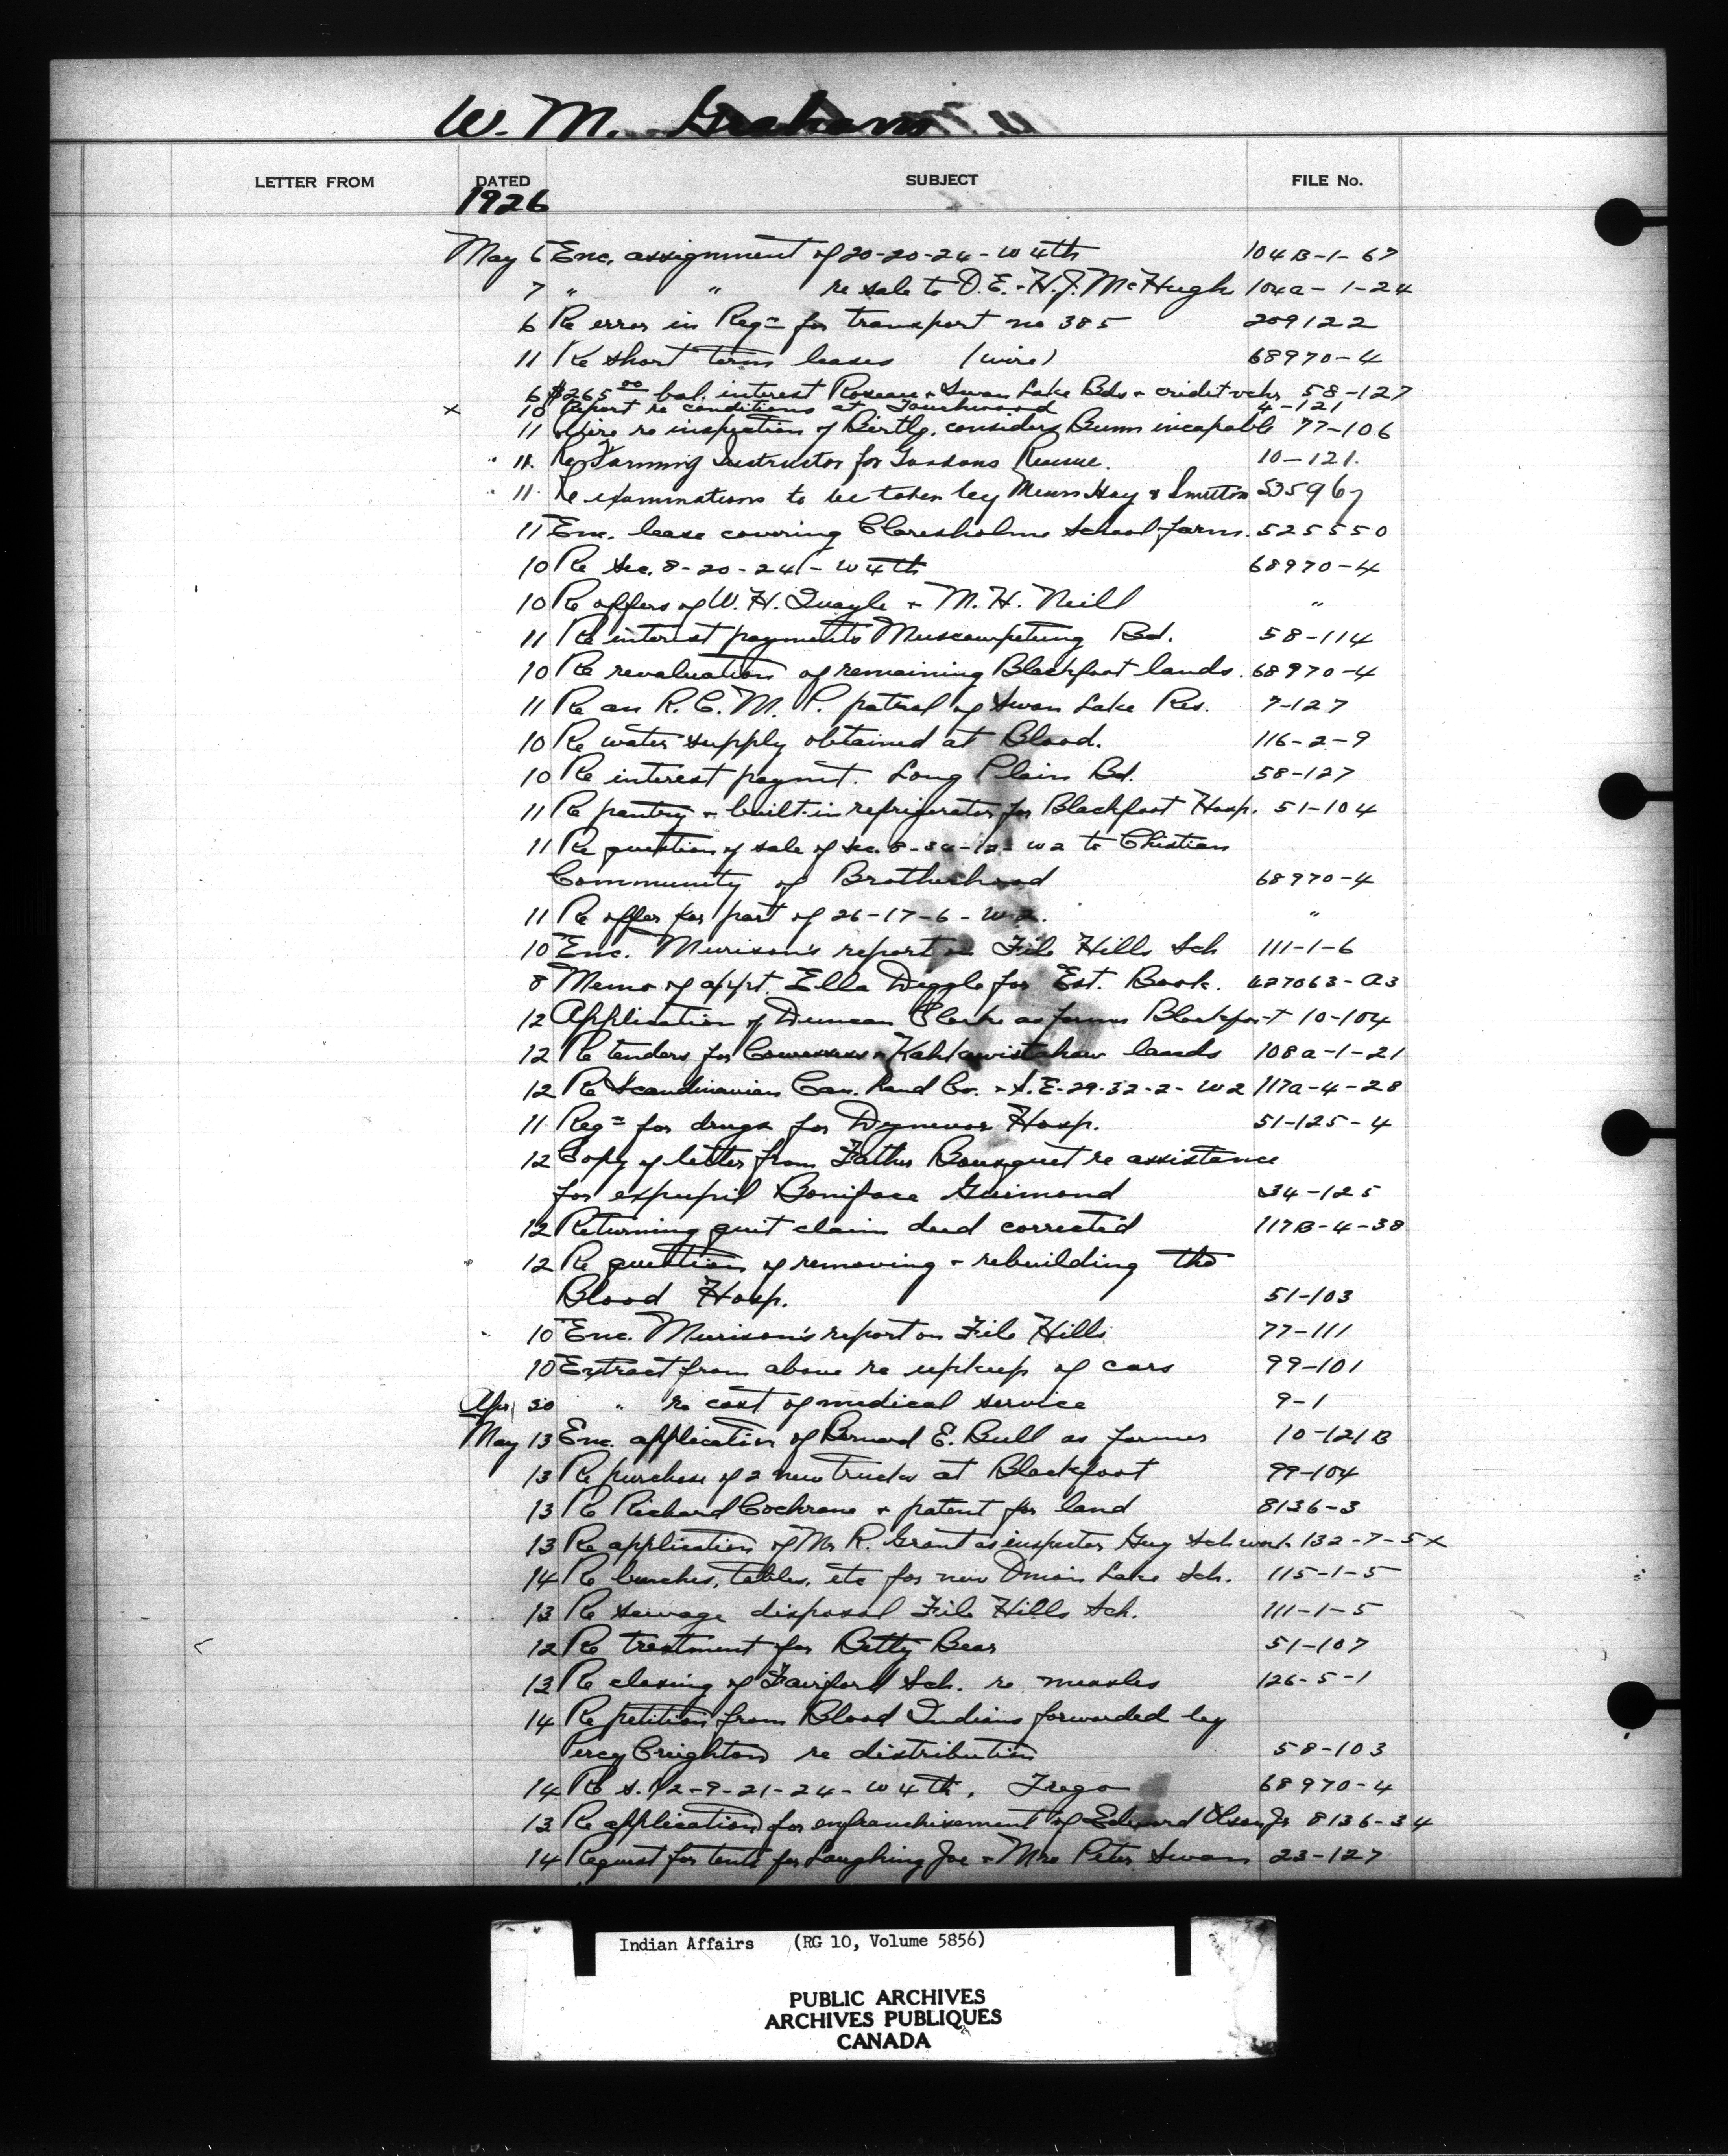 W. M. Graham
LETTER FROM DATED SUBJECT FILE No.
1926
May 6 Enc. assignment of 20-20-24-W 4th 104B-1-67
7 " " re sale to D.E. & H.J. McHugh 104a-1-24
6 Re error in Reqn for transport no 385 209122
11 Re short term leases (wire) 68970-4
6 $265.00 bal. interest Roseau & Swan Lake Bds & credit vchr 58-127
x 10 Report re conditions at Touchwood 4-121
11 Wire re inspection of Birtle, considers Bunn incapable 77-106
11 Re Farming Instructor for Gordons Reserve. 10-121.
11 Re examinations to be taken by Messrs Hay & 535967
11 Enc. lease covering Claresholm School farm. 525550
10 Re Sec. 8-20-24-W 4th 68970-4
10 Re offers of W. H. Quayle & M. H. Neill "
11 Re interest payments Muscowpetung Bd. 58-114
10 Re revaluation of remaining Blackfoot lands. 68970-4
11 Re an R. C. M. P. patrol of Swan Lake Res. 7-127
10 Re water supply obtained at Blood. 116-2-9
10 Re interest paymt. Long Plain Bd. 58-127
11 Re pantry & built-in refrigerator for Blackfoot Hosp. 51-104
11 Re question of sale of Sec. 8-34- W2 to Christian
Community of Brotherhood 68970-4
11 Re offer for part of 26-17-6-W2. "
10 Enc. Murison's report on File Hills Sch 111-1-6
8 Memo of appt. Ella Deggle for Est. Book. 427063-A3
12 Application of Duncan Clarke as farmer Blackfoot 10-104
12 Re tenders for Cowessess & Kahkewistahaw lands 108a-1-21
12 Re Scandinavian Can. Land Co. & S.E-29-32-2-W2 117a-4-28
11 Reqn for drugs for Dynevor Hosp. 51-125-4
12 Copy of letter from Father Bousquet re assistance
for expupil Boniface Guimond 34-125
12 Returning quit claim deed corrected 117B-4-38
12 Re question of removing & rebuilding the
Blood Hosp. 51-103
10 Enc. Murison's report on File Hills 77-111
10 Extract from above re upkeep of cars 99-101
Apr 30 " re cost of medical service 9-1
May 13 Enc. application of Bernard E. Bull as farmer 10-121B
13 Re purchase of 2 new trucks at Blackfoot 99-104
13 Re Richard Cochrane & patent for land 8136-3
13 Re application of Mr R. Grant as inspector Guy Sch work 132-7-5x
14 Re benches, tables, etc for new Onion Lake Sch. 115-1-5
13 Re sewage disposal File Hills Sch. 111-1-5
12 Re treatment for Betty Bear 51-107
13 Re closing of Fairford Sch. re measles 126-5-1
14 Re petition from Blood Indians forwarded by
Percy Creighton re distribution 58-103
14 Re S. 1/2-9-21-24-W 4th. Trego 68970-4
13 Re application for enfranchisement of Edward Olson Jr 8136-34
14 Request for tents for Laughing Joe & Mrs Peter Swan 23-127
Indian Affairs (RG 10, Volume 5856)
PUBLIC ARCHIVES
ARCHIVES PUBLIQUES
CANADA